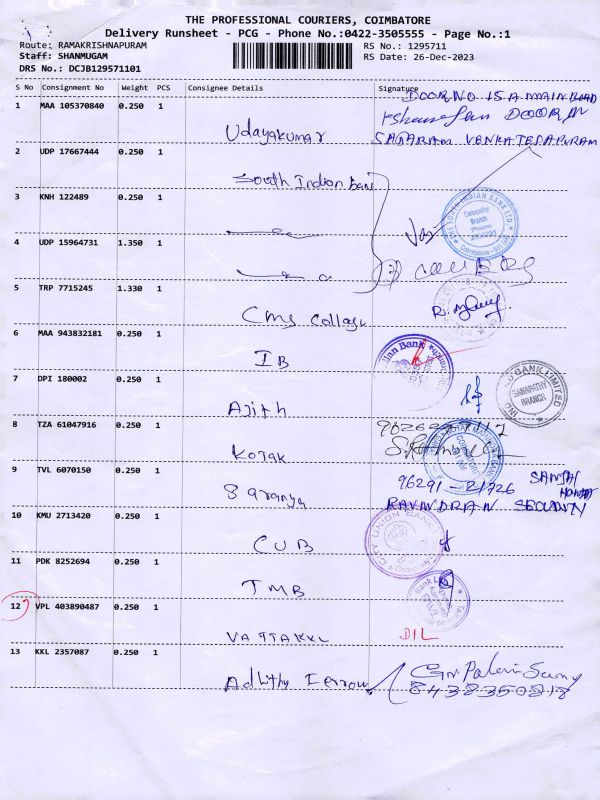 THE PROFESSIONAL COURIERS, COIMBATORE
Delivery Runsheet - PCG - Phone No.:0422-3505555 - Page No.:1
Route: RAMAKRISHNAPURAM
Staff: SHANMUGAM
DRS No.: DCJB129571101
RS No.: 1295711
RS Date: 26-Dec-2023
S No Consignment No Weight PCS Consignee Details Signature
1 MAA 105370840 0.250 1 Udayakumar
DOOR NO 15 A MAIN ROAD
DOOR
VENKATESAPURAM
2 UDP 17667444 0.250 1 South Indian Bank
3 KNH 122489 0.250 1
THE SOUTH INDIAN BANK LTD.
Ganapathy
Branch
4 UDP 15964731 1.350 1
5 TRP 7715245 1.330 1 CMS College
6 MAA 943832181 0.250 1 IB
Indian Bank
7 DPI 180002 0.250 1 Ajith
BANK LIMITED
GANAPATHY
BRANCH
8 TZA 61047916 0.250 1 Kotak
COIMBATORE
9 TVL 6070150 0.250 1 Saranya
96291-21726
RAVINDRAN SECURITY
10 KMU 2713420 0.250 1 CUB
CITY UNION BANK
11 PDK 8252694 0.250 1 TMB
12 VPL 403890487 0.250 1 DIL
13 KKL 2357087 0.250 1 Adhithy
8438350818